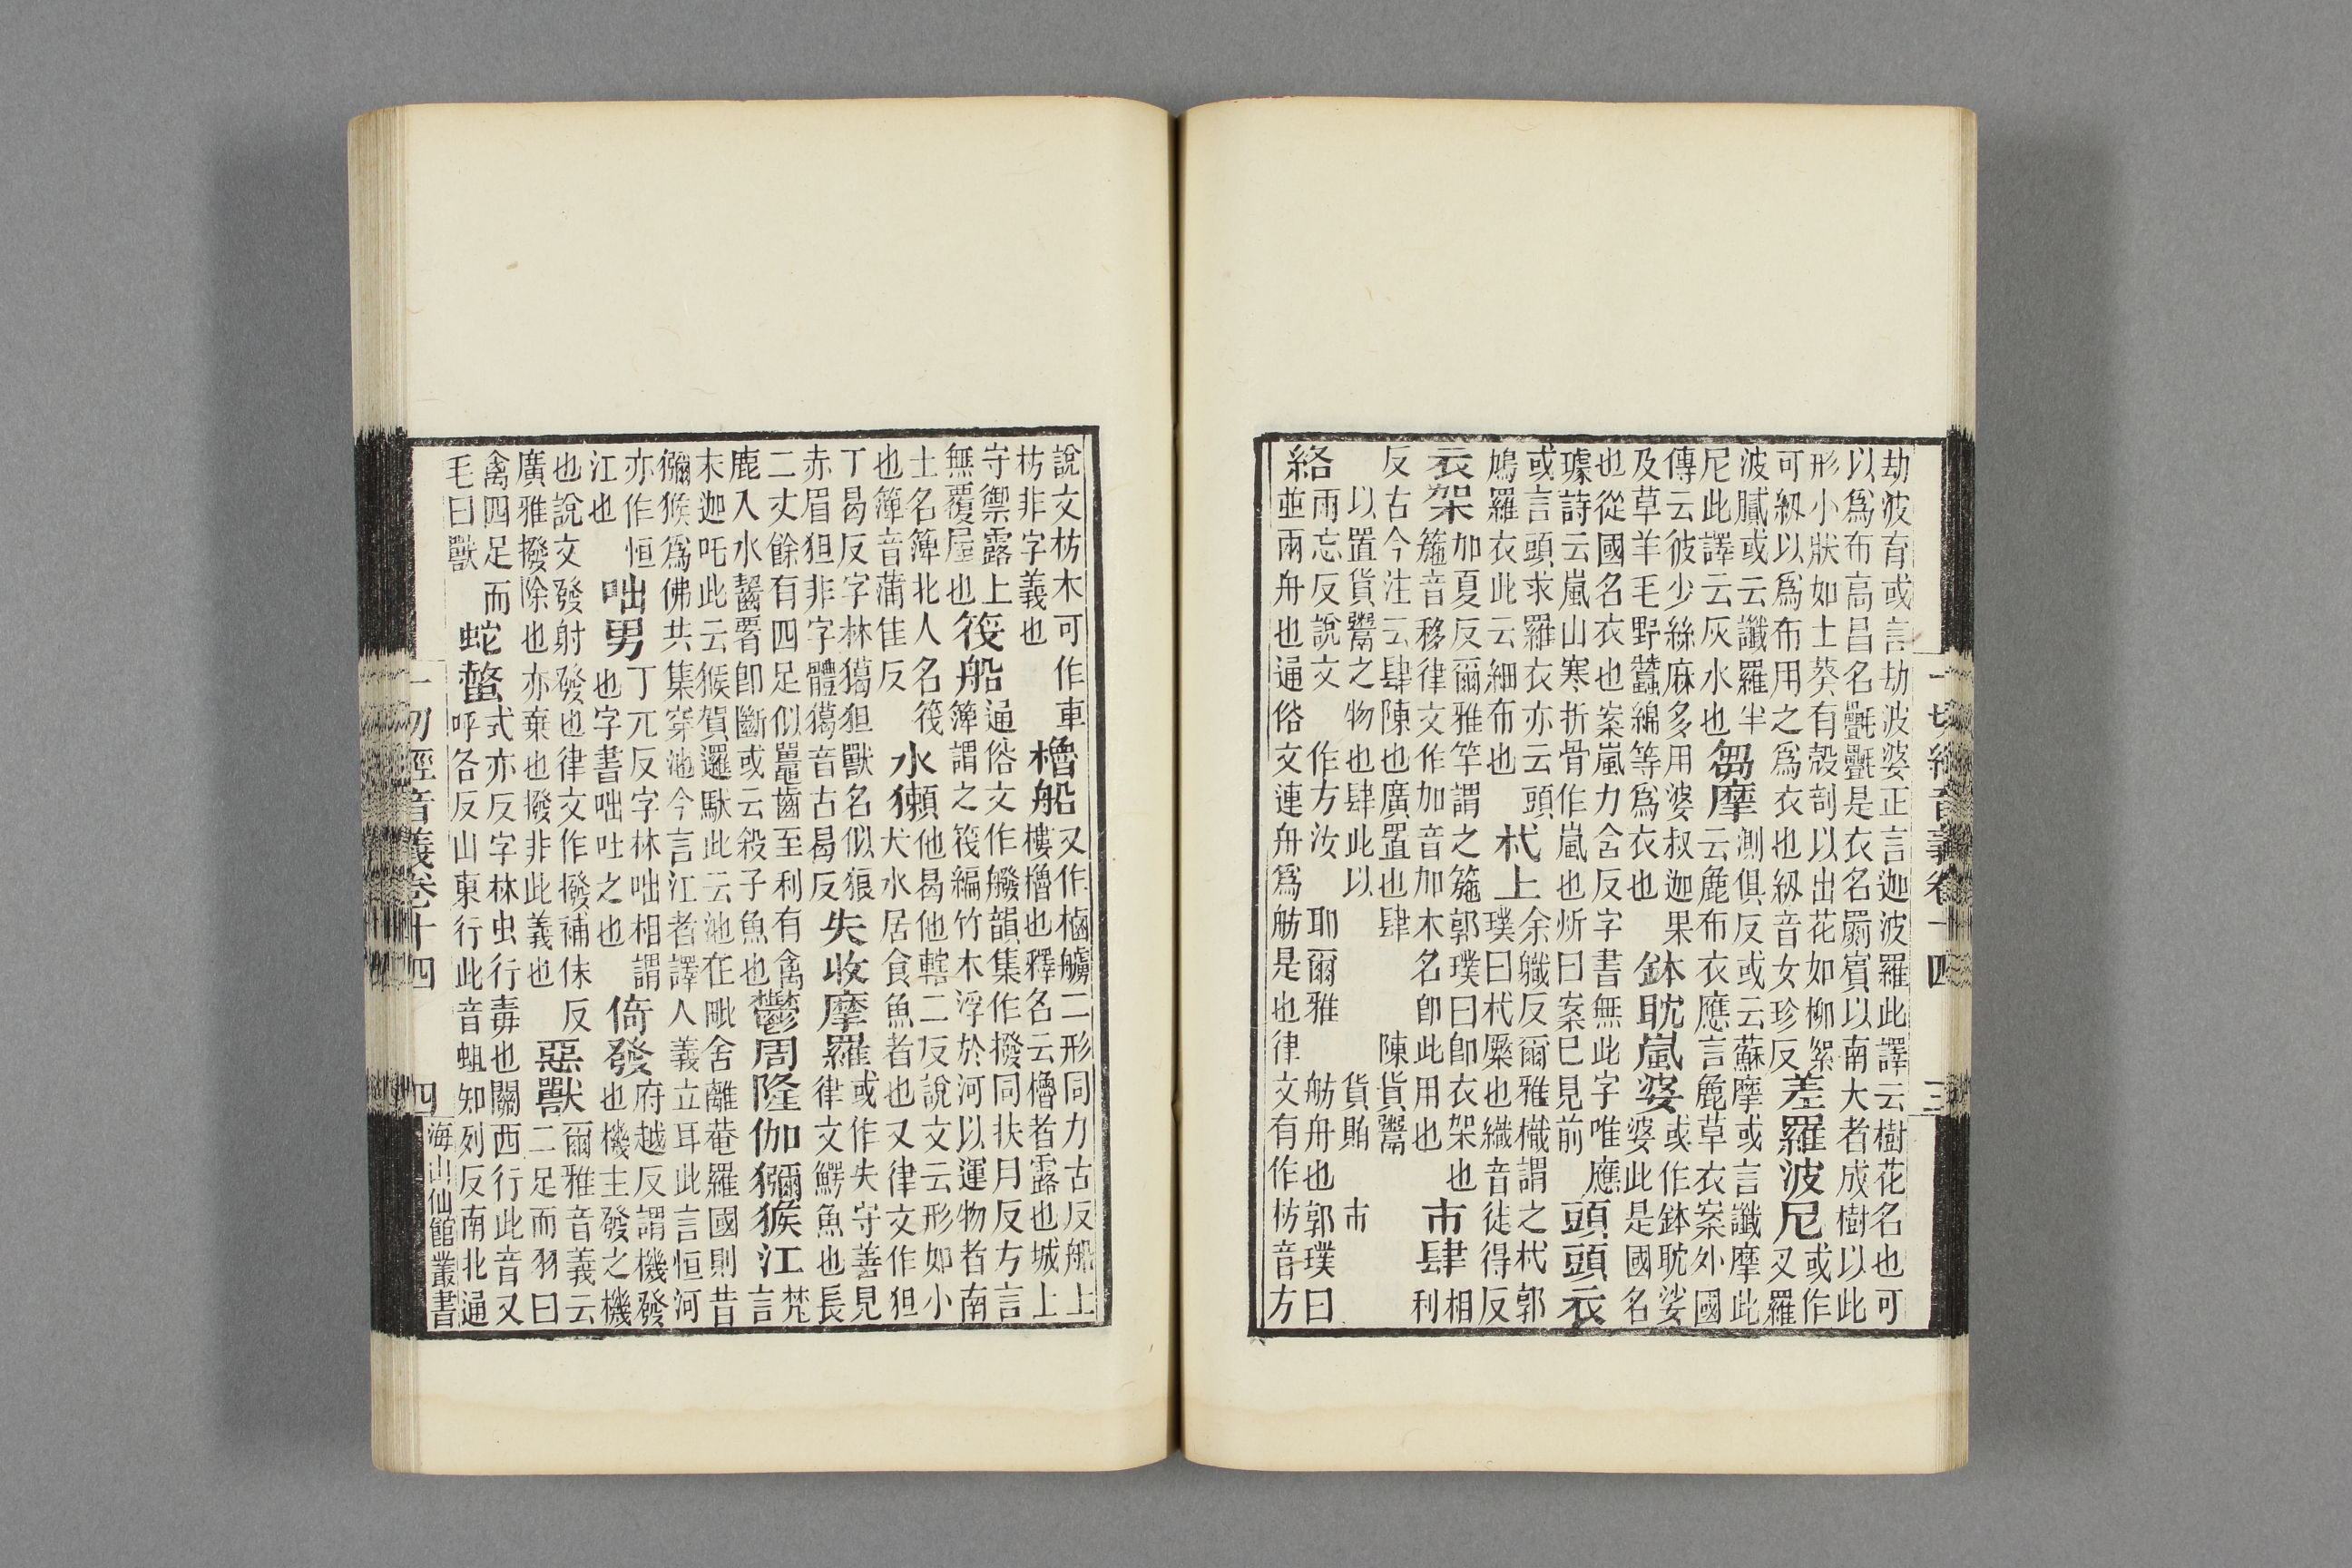 一切經音義卷十四　三
劫波育或言劫波婆正言迦波羅此譯云樹花名也可
以為布高昌名氎氎是衣名罽賓以南大者成樹以此
形小狀如土葵有殼剖以出花如柳絮
可紉以為布用之為衣也紉音女珍反
差羅波尼
或作
叉羅
波膩或云讖羅半
尼此譯云灰水也
芻摩
測俱反或云蘇摩或言讖摩此
云麁布衣應言麁草衣案外國
傳云彼少絲麻多用婆叔迦果
及草羊毛野蠶綿等為衣也
鉢耽嵐婆
或作鉢耽娑
婆此是國名
也從國名衣也案嵐力含反字書無此字唯應
璩詩云嵐山寒折骨作嵐也炘曰案已見前
頭頭衣
或言頭求羅衣亦云頭
鳩羅衣此云細布也
杙上
余軄反爾雅樴謂之杙郭
璞曰杙橜也樴音徒得反
衣架
加夏反爾雅竿謂之箷郭璞曰卽衣架也
箷音移律文作加音加木名卽此用也
市肆
相
利
反古今注云肆陳也廣置也肆　陳貨鬻
以置貨鬻之物也肆此以　貨賄　市
絡
雨忘反說文　作方汝　耶爾雅　舫舟也郭璞曰
並兩舟也通俗文連舟為舫是也律文有作枋音方
說文枋木可作車
枋非字義也
櫓船
又作樐艣二形同力古反船上
樓櫓也釋名云櫓者露也城上
守禦露上
無覆屋也
筏船
通俗文作䑔韻集作撥同扶月反方言
簰謂之筏編竹木浮於河以運物者南
土名簰北人名筏
也簰音蒲佳反
水獺
他曷他轄二反說文云形如小
犬水居食魚者也又律文作狚
丁曷反字林獦狚獸名似狼
赤眉狚非字體獦音古曷反
失收摩羅
或作失守善見
律文鰐魚也長
二丈餘有四足似鼉齒至利有禽
鹿入水齧卽斷或云殺子魚也
鬱周隆伽獼猴江
梵
言
末迦吒此云猴賀邏馱此云池在毗舍離菴羅國則昔
獼猴為佛共集穿池今言江者譯人義立耳此言恒河
亦作恒
江也
咄男
丁兀反字林咄相謂
也字書咄吐之也
倚發
府越反謂機發
也機主發之機
也說文發射發也律文作撥補沬反
廣雅撥除也亦棄也撥非此義也
惡獸
爾雅音義云
二足而羽曰
禽四足而
毛曰獸
蛇螫
式亦反字林虫行毒也關西行此音又
呼各反山東行此音蛆知列反南北通
一切經音義卷十四　四　海山仙館叢書